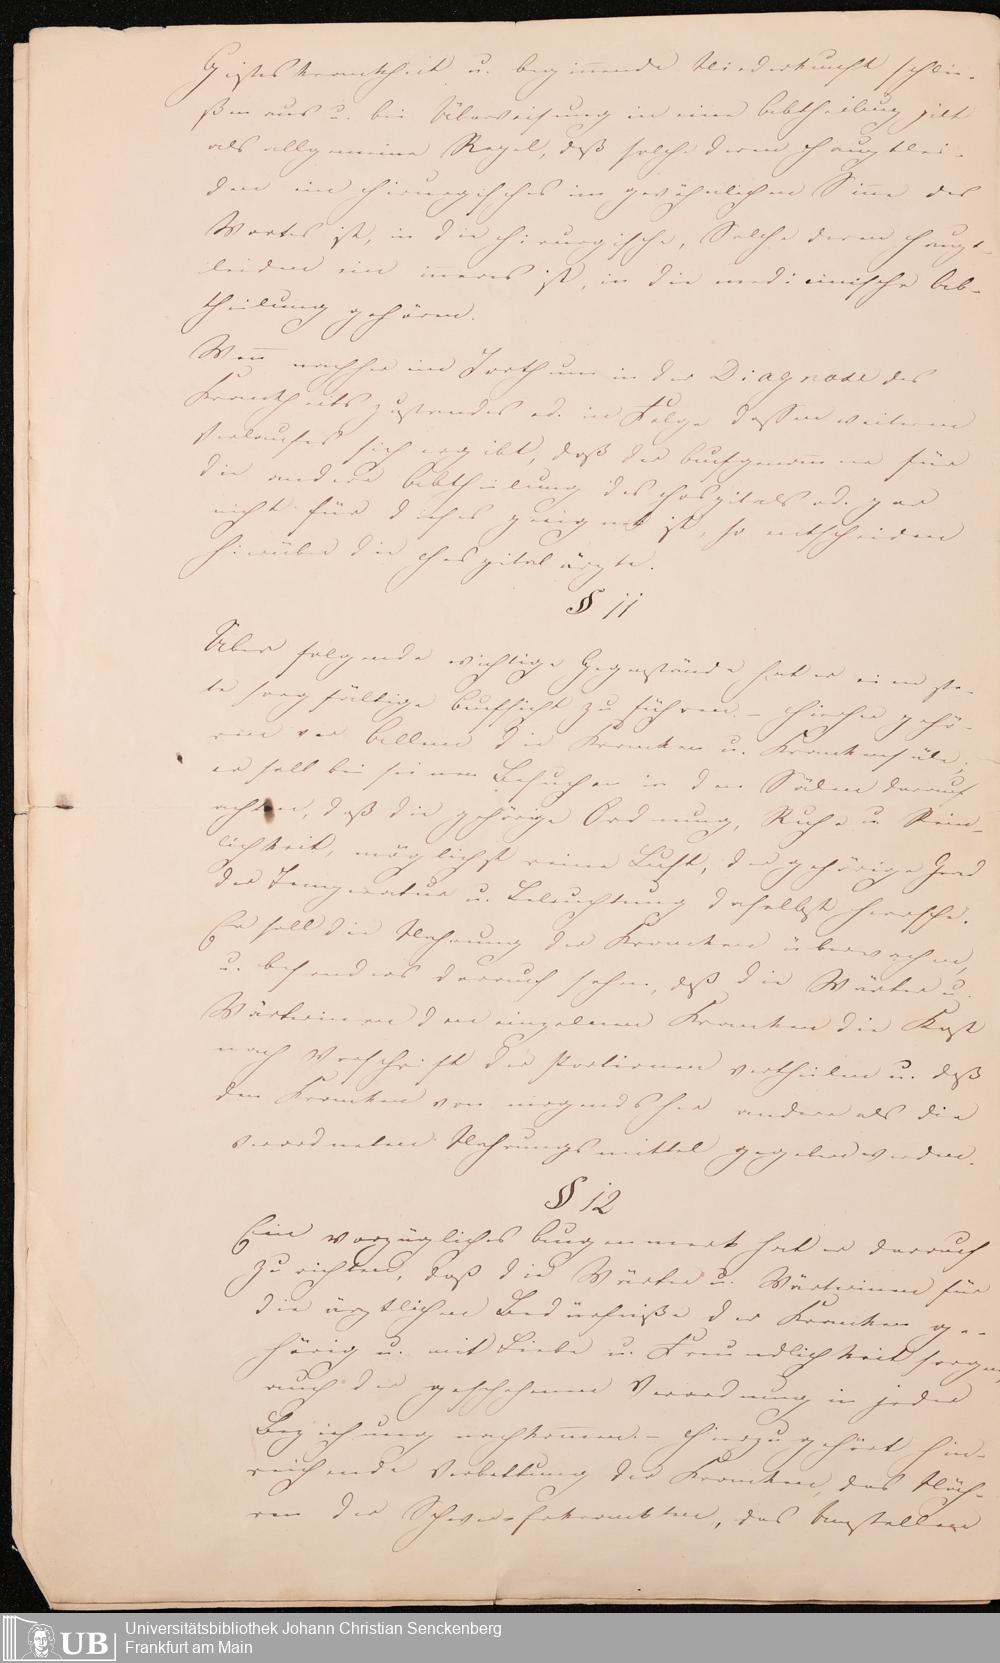 Geisteskrankheit u. beginnende Niederkunft schlie-
ßen aus u. bei Überweisung in eine Abtheilung gilt
als allgemeine Regel, daß solche deren Hauptlei-
den ein chirurgisches im gewöhnlichen Sinne des
Wortes ist, in die chirurgische, Solche deren Haupt-
leiden ein inneres ist, in die medicinische Ab-
theilung gehören.
Wenn nachher ein Irrthum in der Diagnose des
Krankheitszustandes od. in Folge dessen weiteren
Verlaufes sich ergibt, daß der Aufgenommene für
die andere Abtheilung des Hospitals od. gar
nicht für dieses geeignet ist, so entscheiden
hierüber die Hospitalärzte.
§ 11
Über folgende wichtige Gegenstände hat er eine ste-
te sorgfältige Aufsicht zu führen – Hierher gehö-
ren vor Allem die Kranken u. Krankensäle;
er soll bei seinen Besuchen in den Sälen darauf
achten, daß die gehörige Ordnung, Ruhe u. Rein-
lichkeit, möglichst reine Luft, der gehörige Grad
der Temperatur u. Beleuchtung daselbst herrsche.
Er soll die Nahrung der Kranken überwachen,
u. besonders darauf sehen, daß die Wärter u.
Wärterinen den einzelnen Kranken die Kost
nach Vorschrift der Portionen vertheilen u. daß
den Kranken von nirgends her andere als die
verordneten Nahrungsmittel gegeben werden.
§ 12
Ein vorzügliches Augenmerk hat er darauf
zu richten, daß die Wärter u. Wärterinen für
die ärztlichen Bedürfniße der Kranken ge-
hörig u. mit Liebe u. Freundlichkeit sorgen,
auch der geschehenen Verordnung in jeder
Beziehung nachkommen. – Hierzu gehört hin-
reichende Verbettung der Kranken, das
der Schwererkrankten, das Anstellen
Universitätsbibliothek Johann Christian Senckenberg
UB Frankfurt am Main